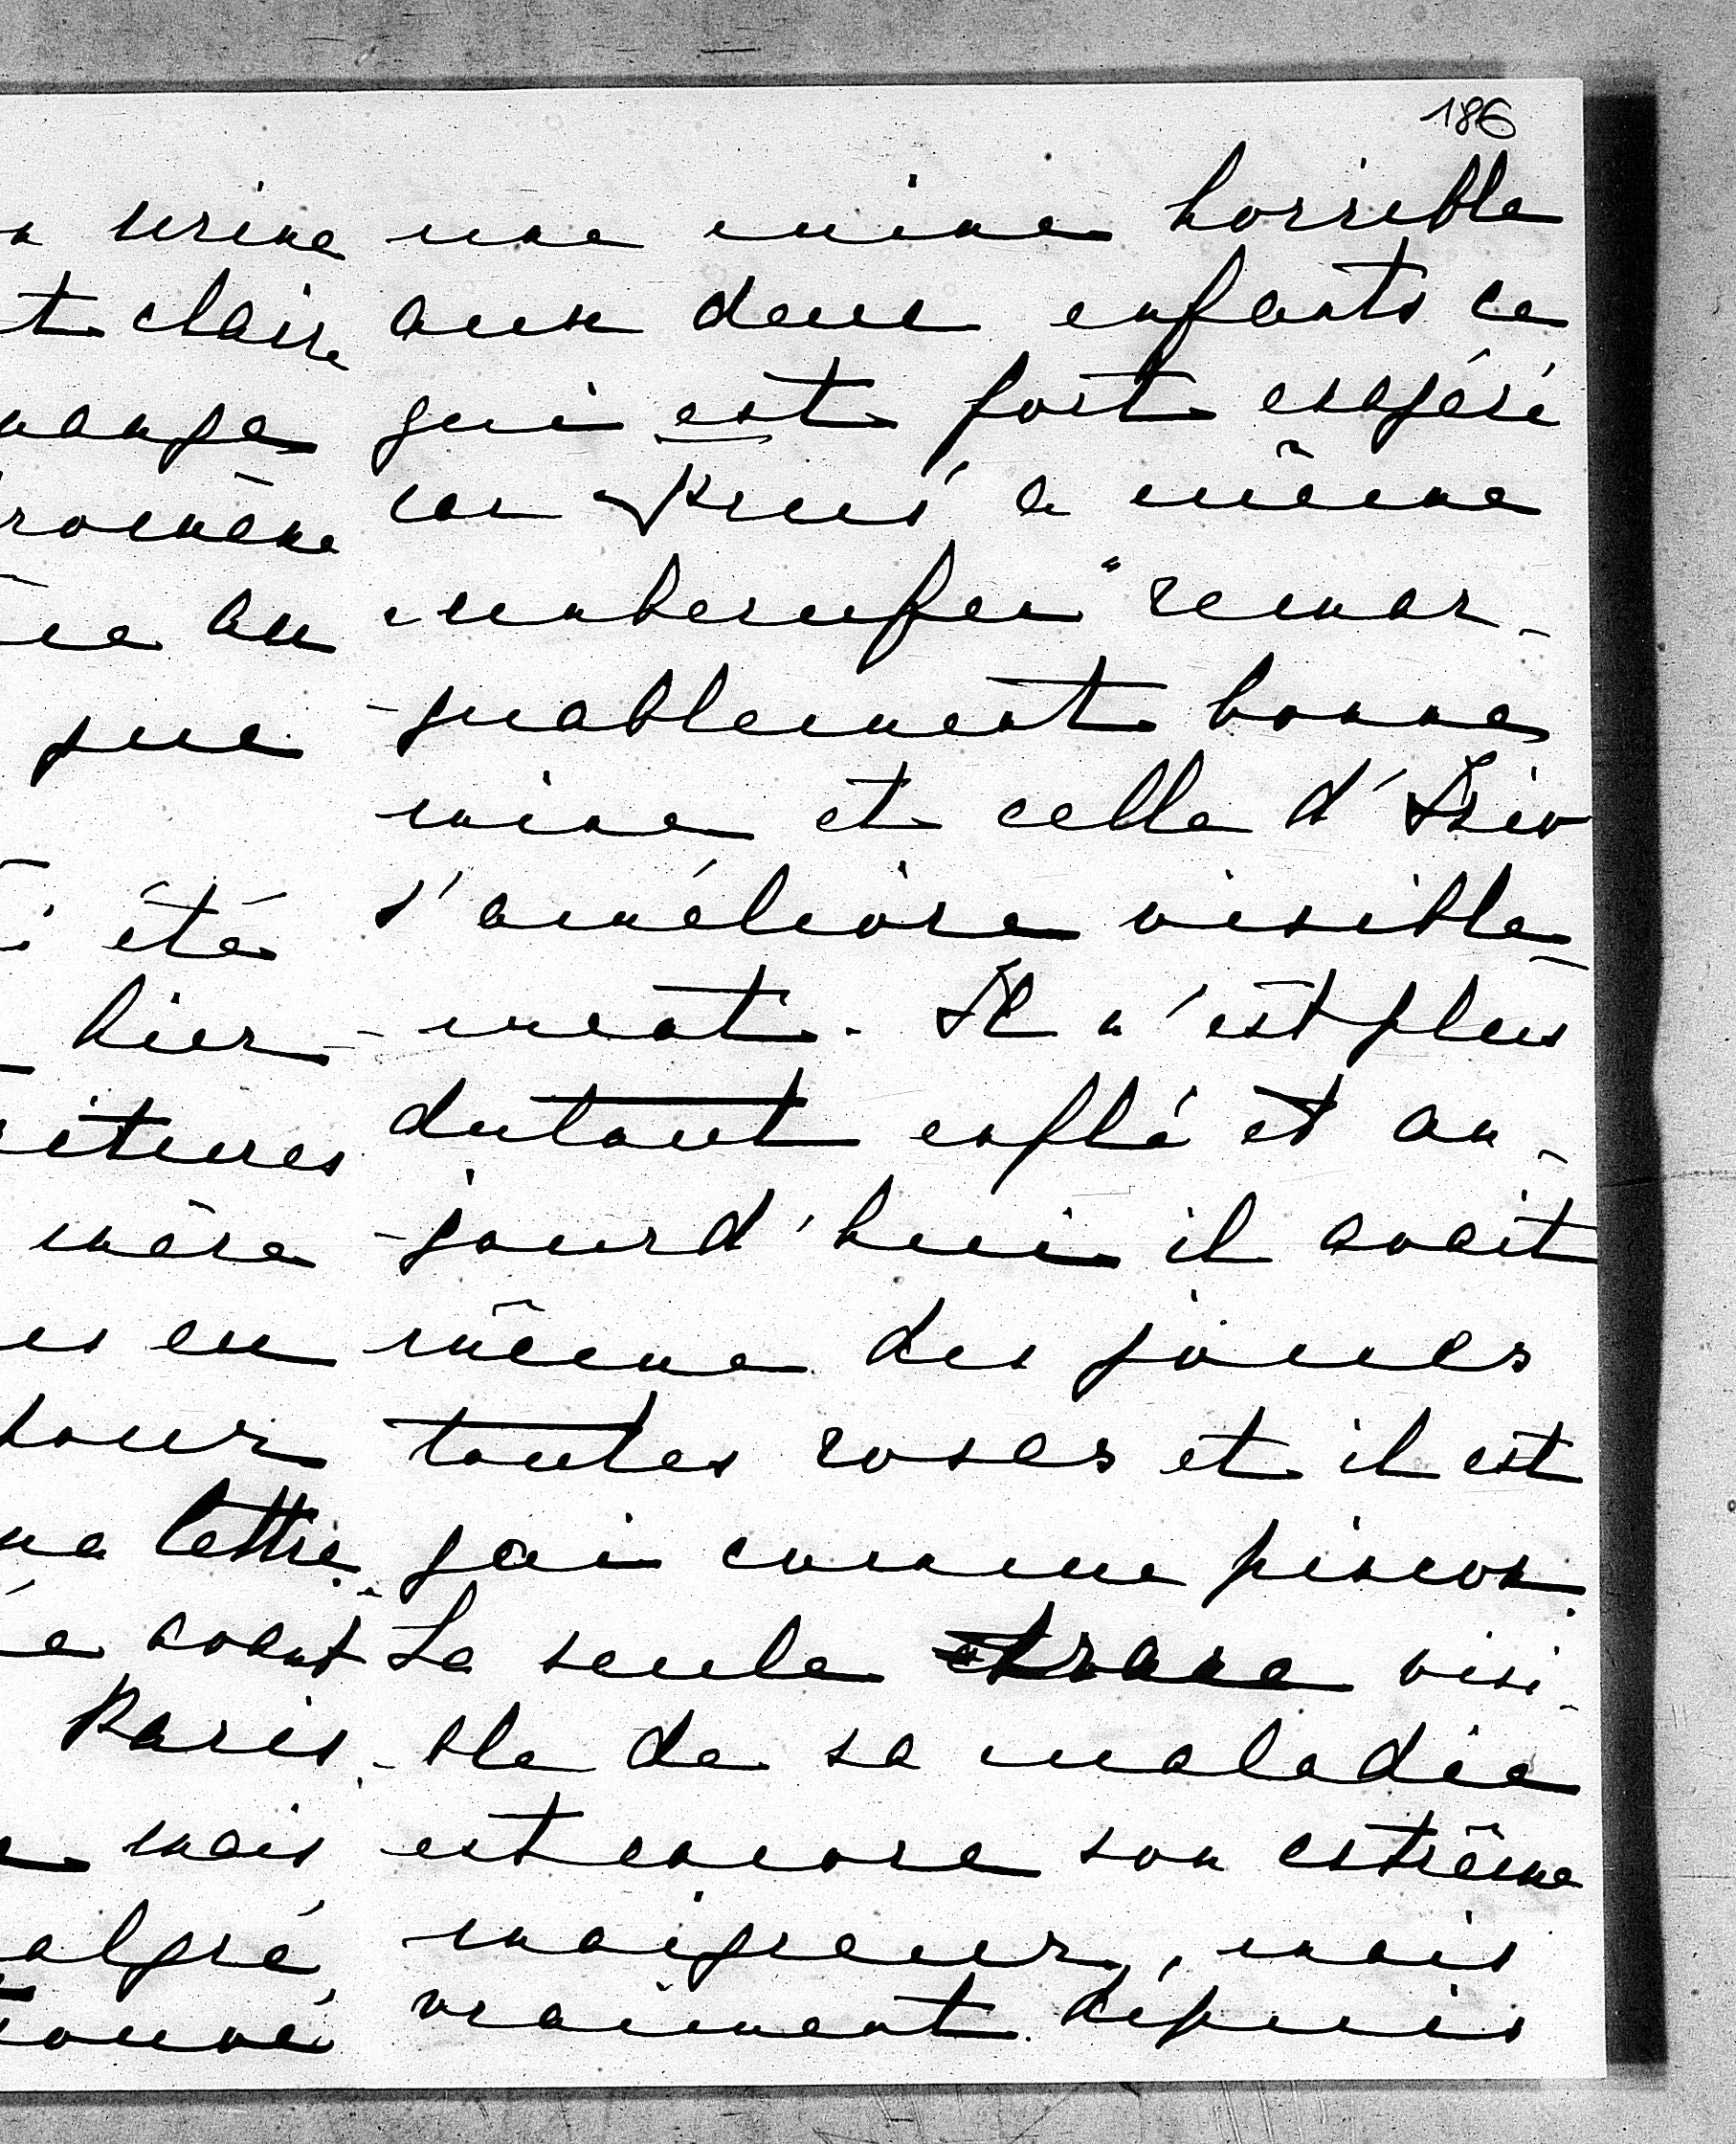 186
urine
t claire
mange
romène
au
que
été
hier
itures
mère
es en
pour
ma lettre.
avant
Paris.
mais
algré
ouvé
une mine horrible
aux deux enfants ce
qui est fort exagéré
car a même
"unberufen" remar-
-quablement bonne
mine et celle d'Izio
s'améliore visible-
-ment. Il n'est plus
dutout enflé et au-
-jourd'hui il avait
même des joues
toutes roses et il est
gai comme pinson.
La seule trace visi-
-ble de sa maladie
est encore son extrême
maigreur, mais
vraiment depuis